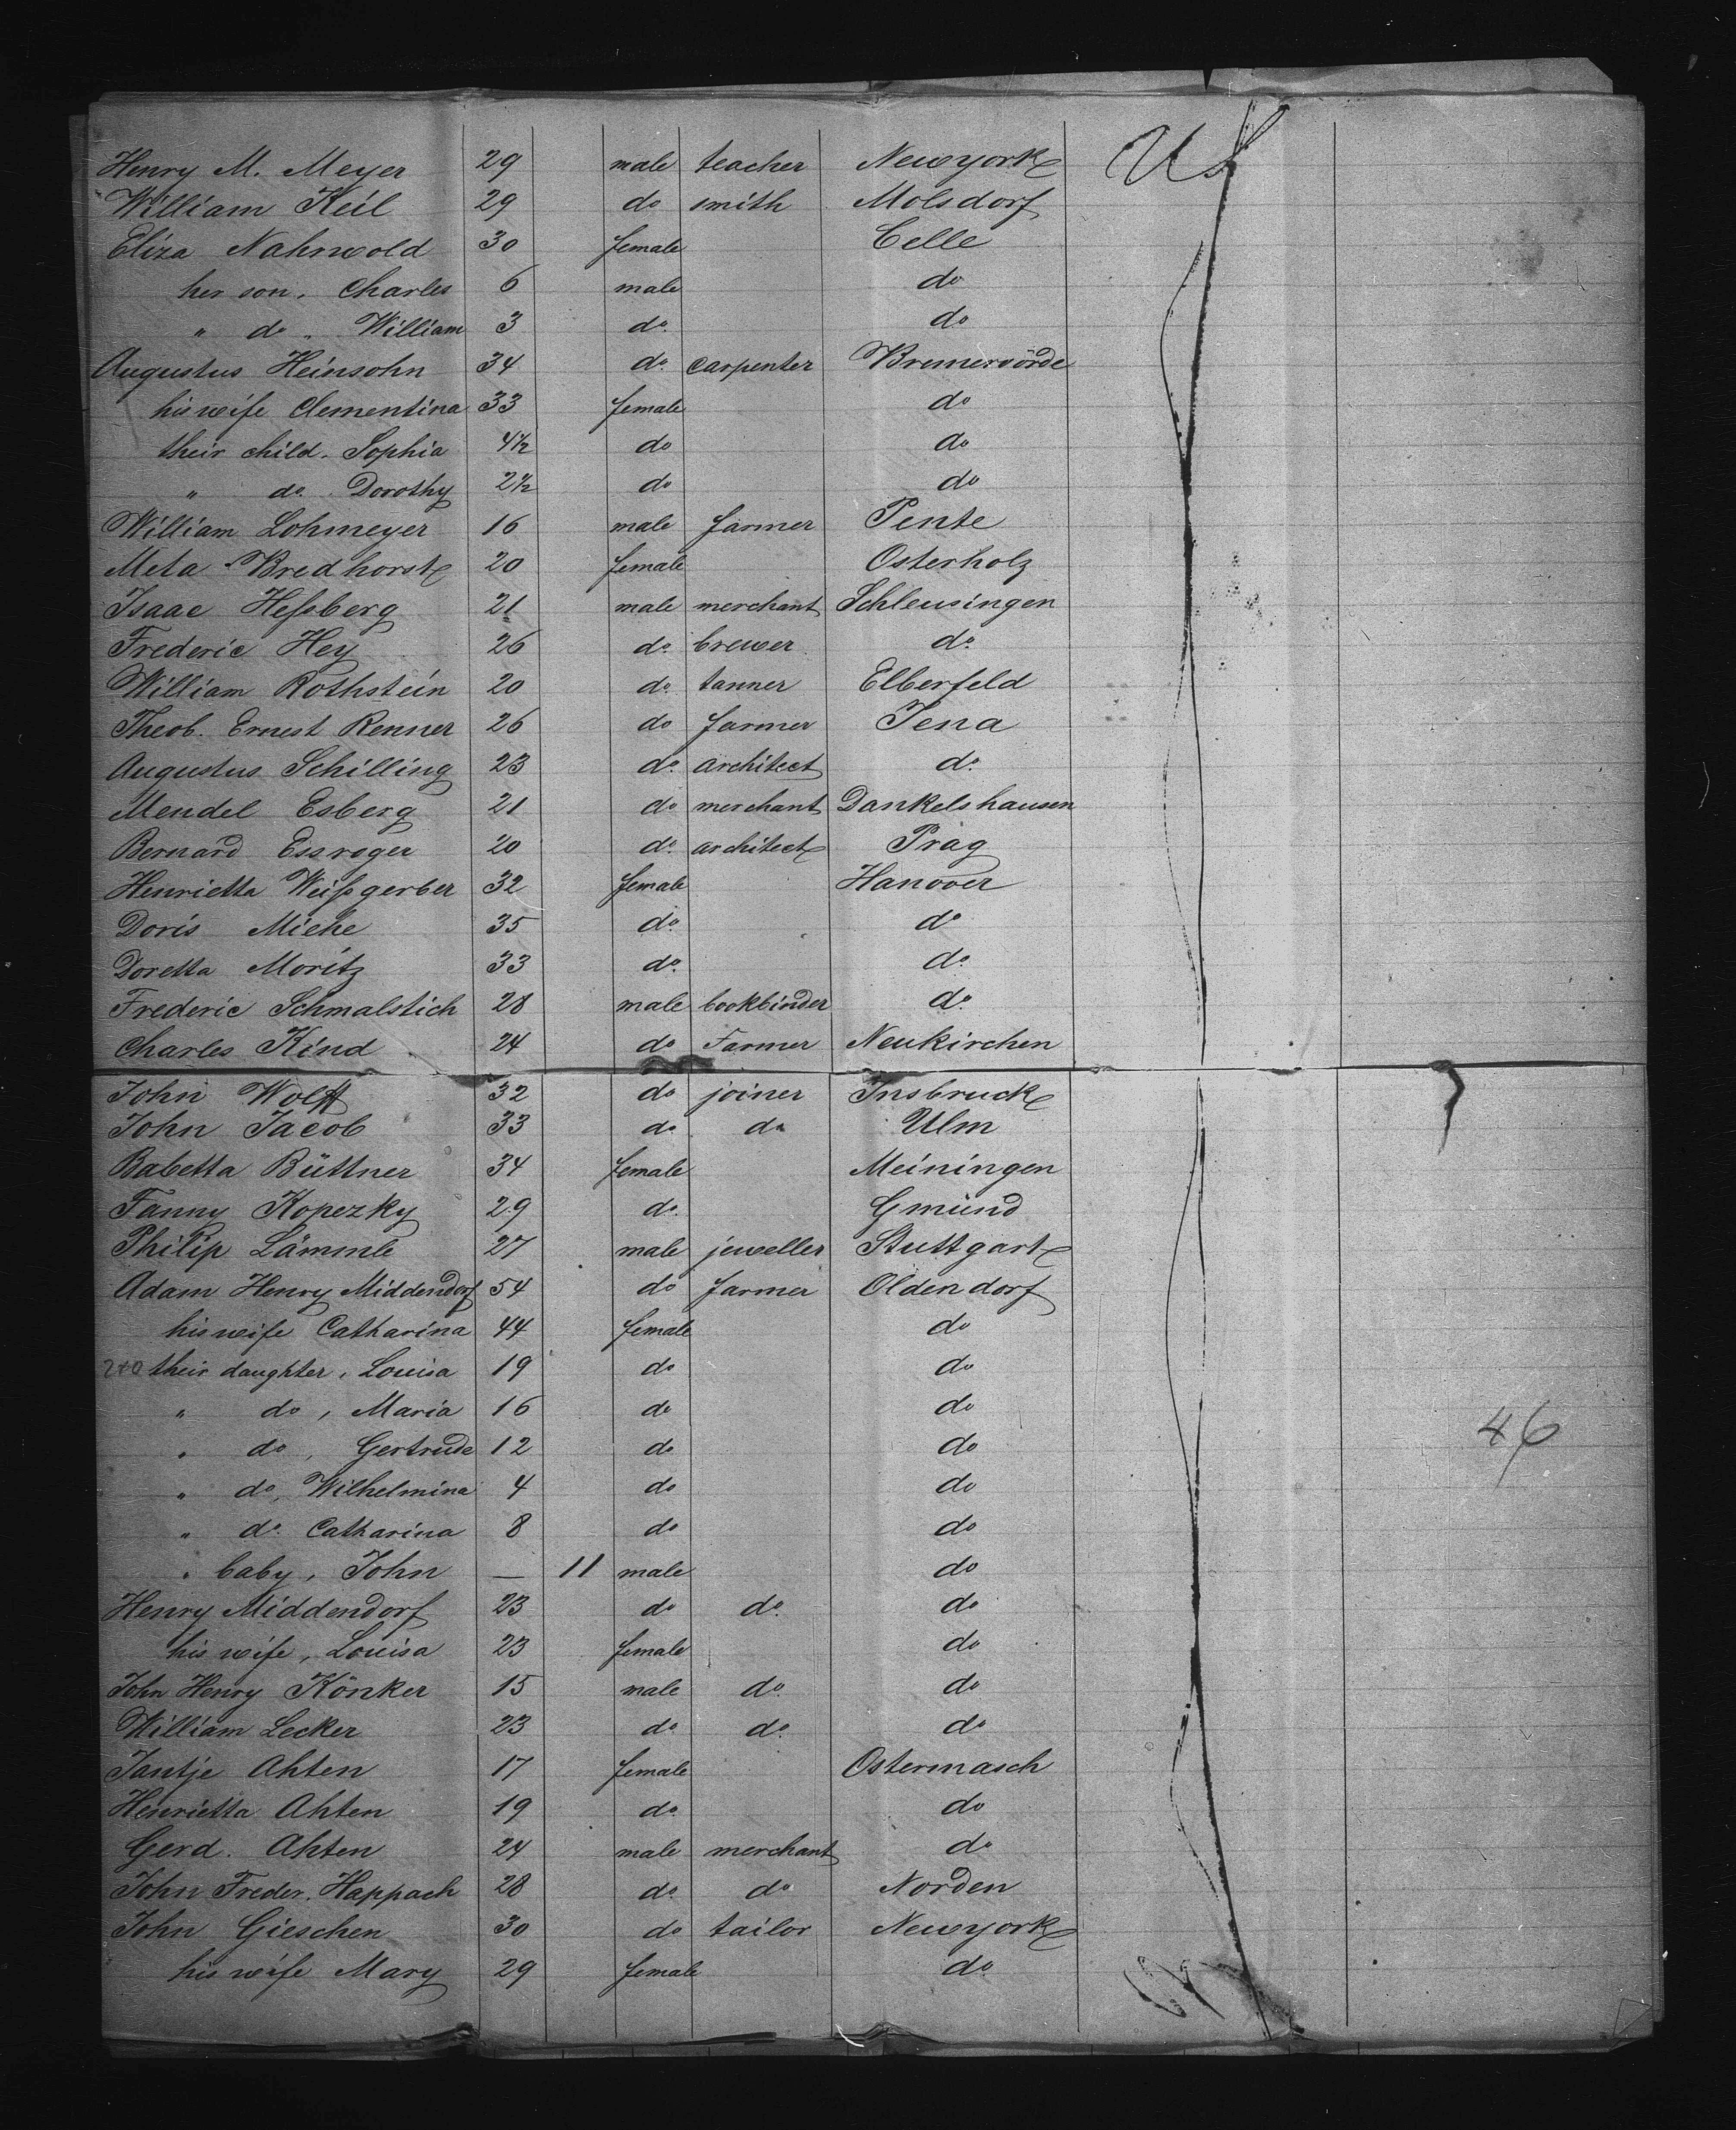 Henry M. Meyer 29 male teacher Newyork U S
William Keil 29 do smith Molsdorf
Eliza Nahrwold 30 female Celle
her son, Charles 6 male do
" do " William 3 do do
Augustus Heinsohn 34 do carpenter Bremervörde
his wife Clementina 33 female do
their child. Sophia 4½ do do
" do. Dorothy 2½ do do
William Lohmeyer 16 male farmer Pente
Meta Bredhorst 20 female Osterholz
Isaac Heſsberg 21 male merchant Schleusingen
Frederic Hey 26 do brewer do
William Rothstein 20 do tanner Elberfeld
Theob. Ernest Renner 26 do farmer Jena
Augustus Schilling 23 do architect do
Mendel Esberg 21 do merchant Dankelshausen
Bernard Essroger 20 do architect Prag
Henrietta Weiſsgerber 32 female Hanover
Doris Miehe 35 do do
Doretta Moritz 33 do do
Frederic Schmalstich 28 male bookbinder do
Charles Kind 24 do Farmer Neukirchen
John Wolff 32 do joiner Insbruck
John Jacob 33 do do Ulm
Babetta Büttner 34 female Meiningen
Fanny Kopezky 29 do Gmünd
Philip Lämmle 27 male jeweller Stuttgart
Adam Henry Middendorf 54 do farmer Oldendorf
his wife Catharina 44 female do
240 their daughter, Louisa 19 do do
" do, Maria 16 do do
" do, Gertrude 12 do do
" do, Wilhelmina 4 do do
" do Catharina 8 do do
" baby, John — 11 male do
Henry Middendorf 23 do do do
his wife, Louisa 23 female do
John Henry Könker 15 male do do
William Lecker 23 do do do
Jantje Ahten 17 female Ostermasch
Henrietta Ahten 19 do do
Gerd. Ahten 24 male merchant do
John Freder. Happach 28 do do Norden
John Gieschen 30 do tailor Newyork
his wife Mary 29 female do
46